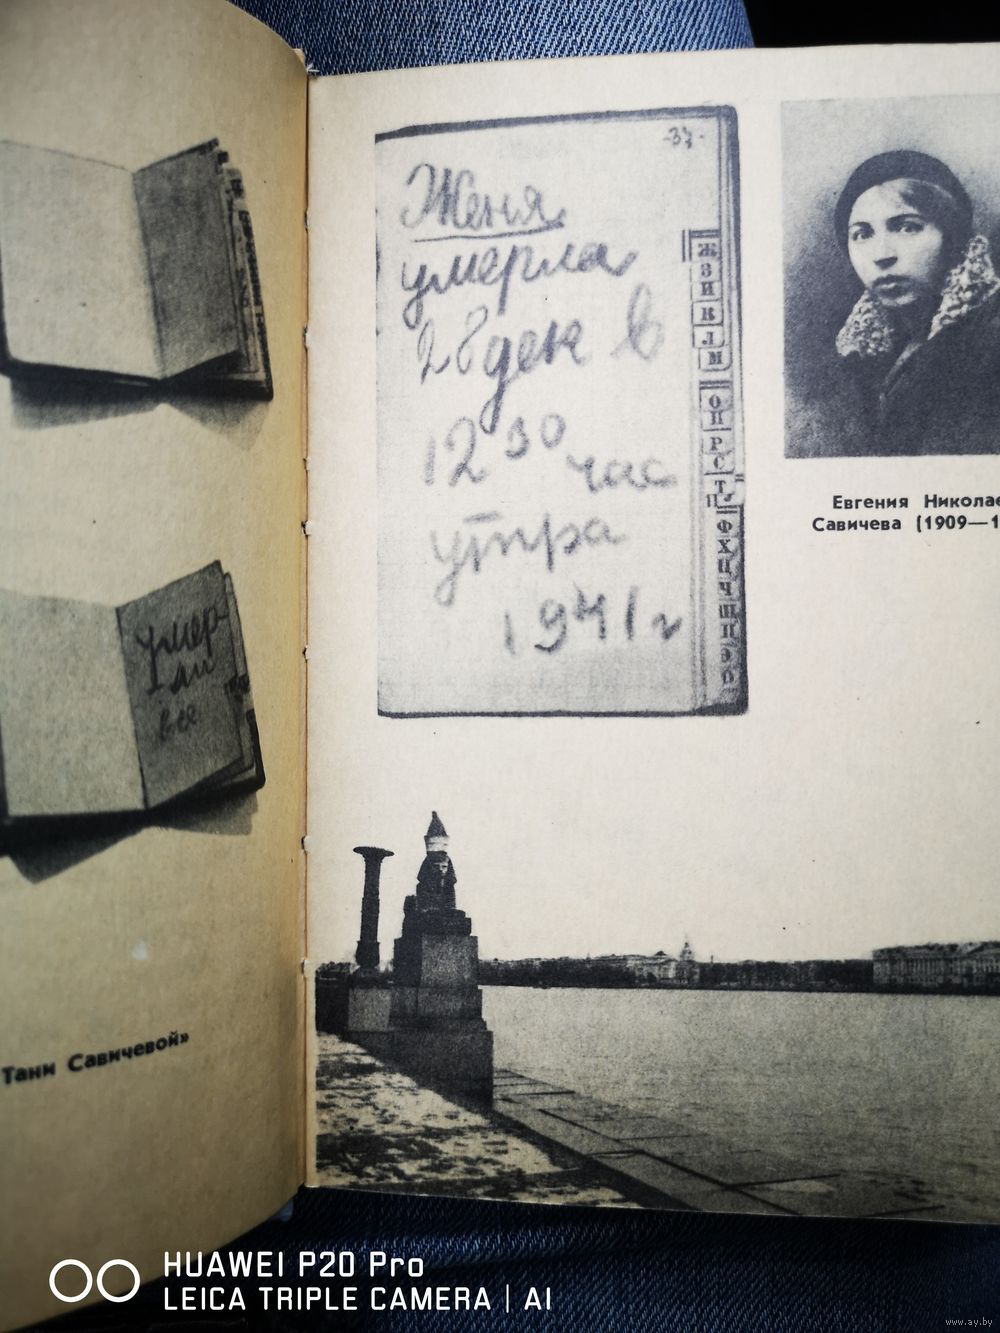 умер
ли
все
Тани Савичевой»
-37-
Женя
умерла
28 дек в
12 30 час
утра
1941 г
Ж
З
И
К
Л
М
О
П
Р
С
Т
Ф
Х
Ц
Ч
Ш
Евгения Николае
Савичева (1909—1
HUAWEI P20 Pro
LEICA TRIPLE CAMERA | AI
www.ay.by